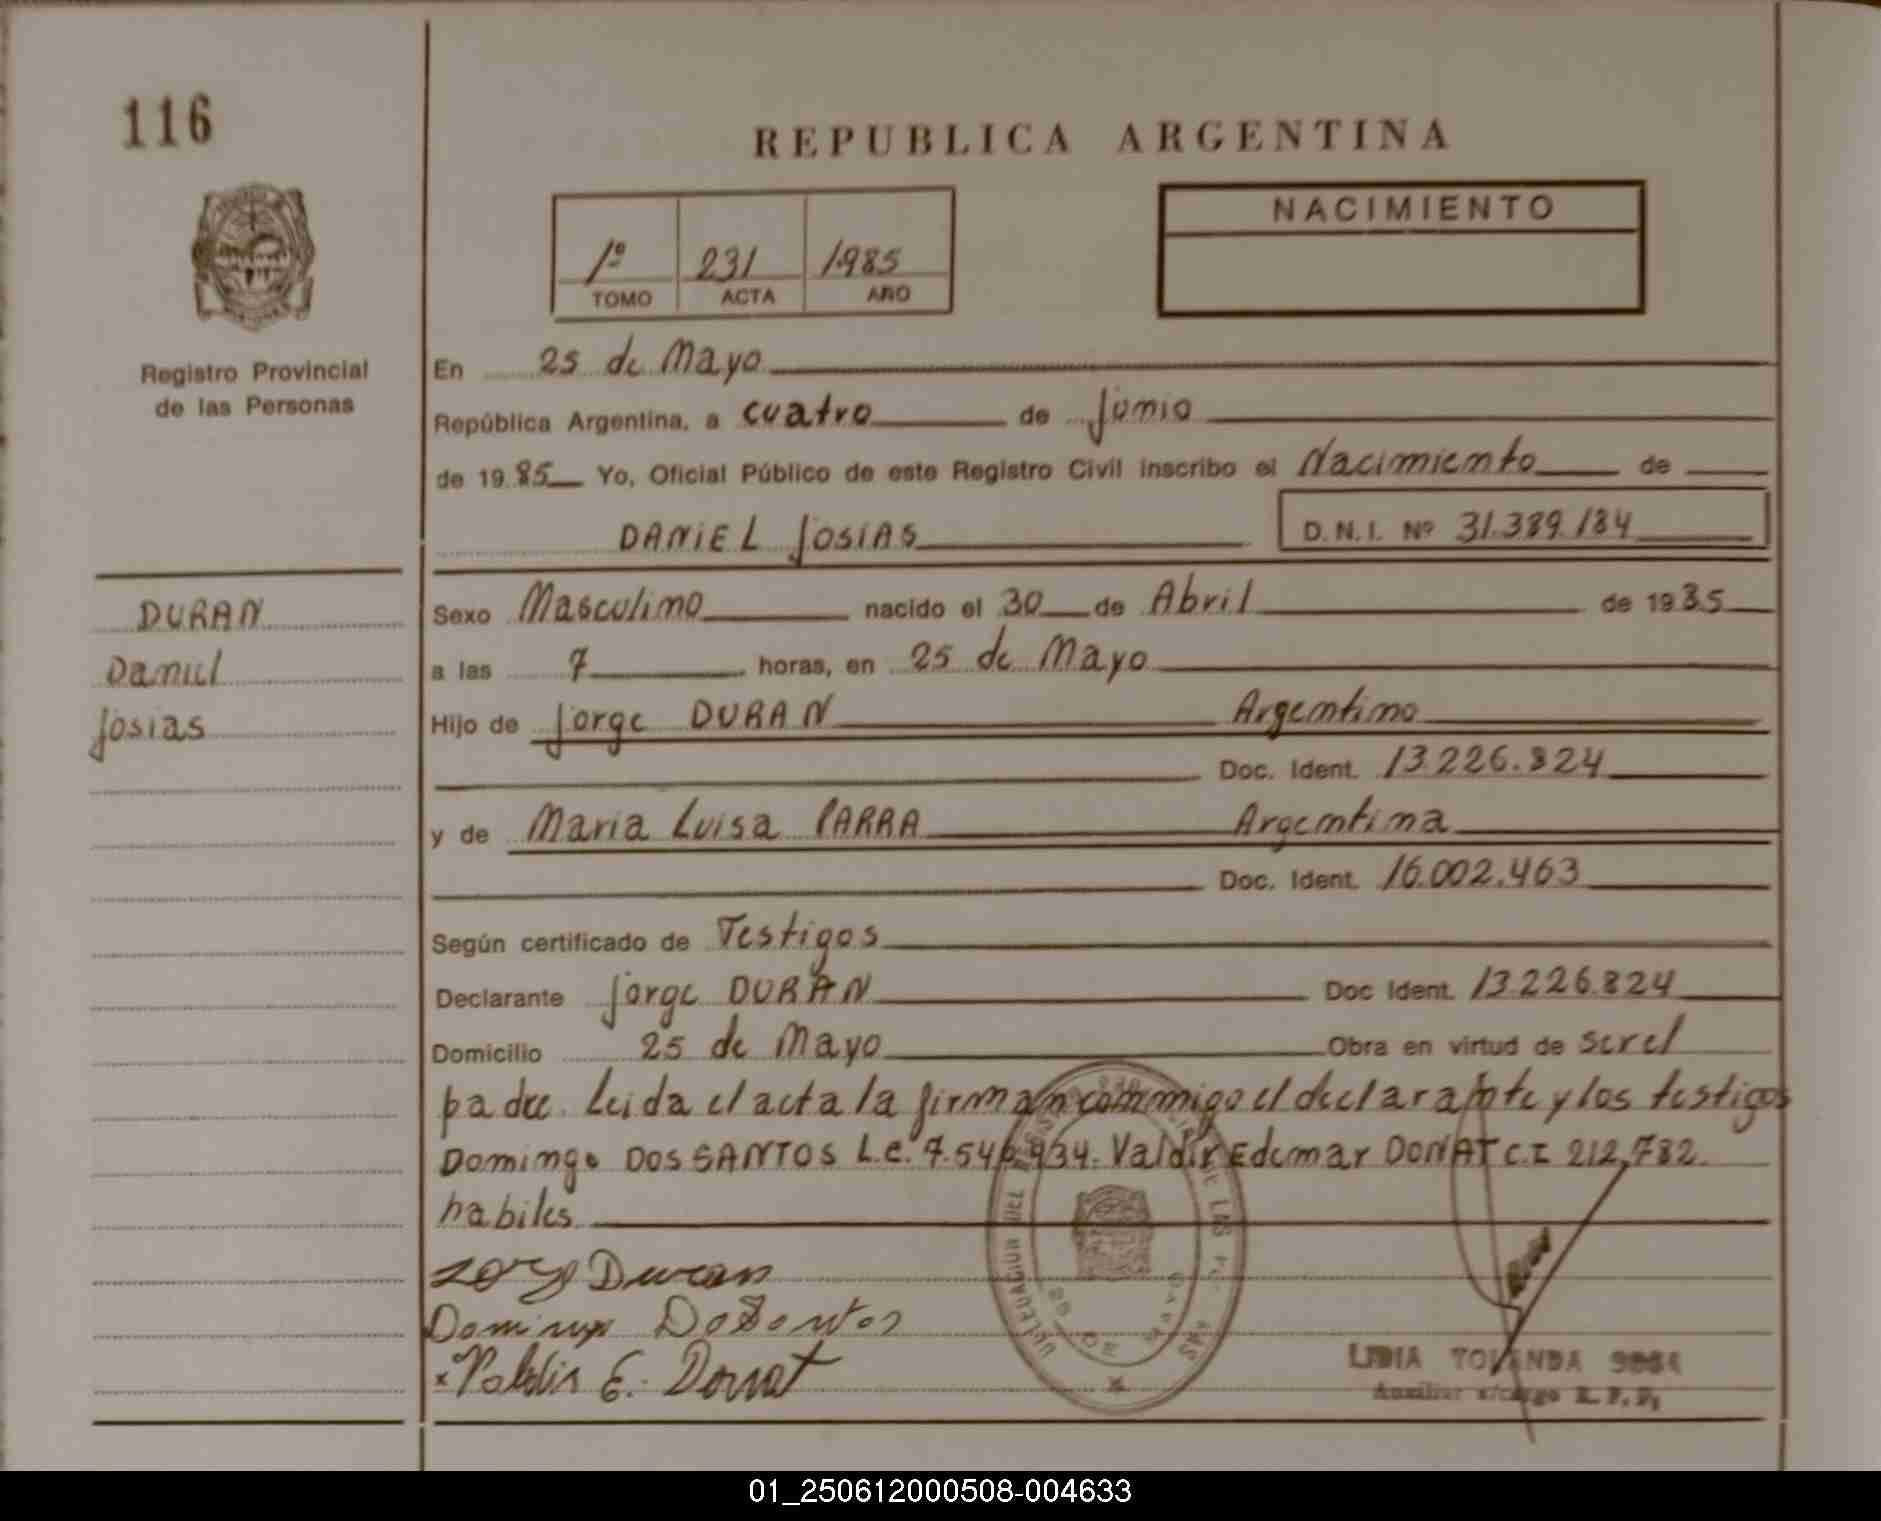 116
REPUBLICA ARGENTINA
1º 231 1985
TOMO ACTA AÑO
NACIMIENTO
Registro Provincial
de las Personas
En 25 de Mayo
República Argentina, a cuatro de junio
de 1985 Yo, Oficial Público de este Registro Civil inscribo el Nacimiento de
DANIEL JOSIAS D.N.I. Nº 31.389.184
DURAN
Daniel
Josias
Sexo Masculino nacido el 30 de Abril de 1985
a las 7 horas, en 25 de Mayo
Hijo de Jorge DURAN Argentino
Doc. Ident. 13.226.824
y de Maria Luisa PARRA Argentina
Doc. Ident. 16.002.463
Según certificado de Testigos
Declarante Jorge DURAN Doc Ident. 13.226.824
Domicilio 25 de Mayo Obra en virtud de ser el
padre. Leida el acta la firman conmigo el declarante y los testigos
Domingo DOS SANTOS L.e. 7.546.934. Valdir Edemar DONAT C.I 212,782.
habiles
Duran
DE LAS
25 DE MAYO
E. Donat
LIDIA YOLANDA
Auxiliar a/cargo R. P. P.
01_250612000508-004633